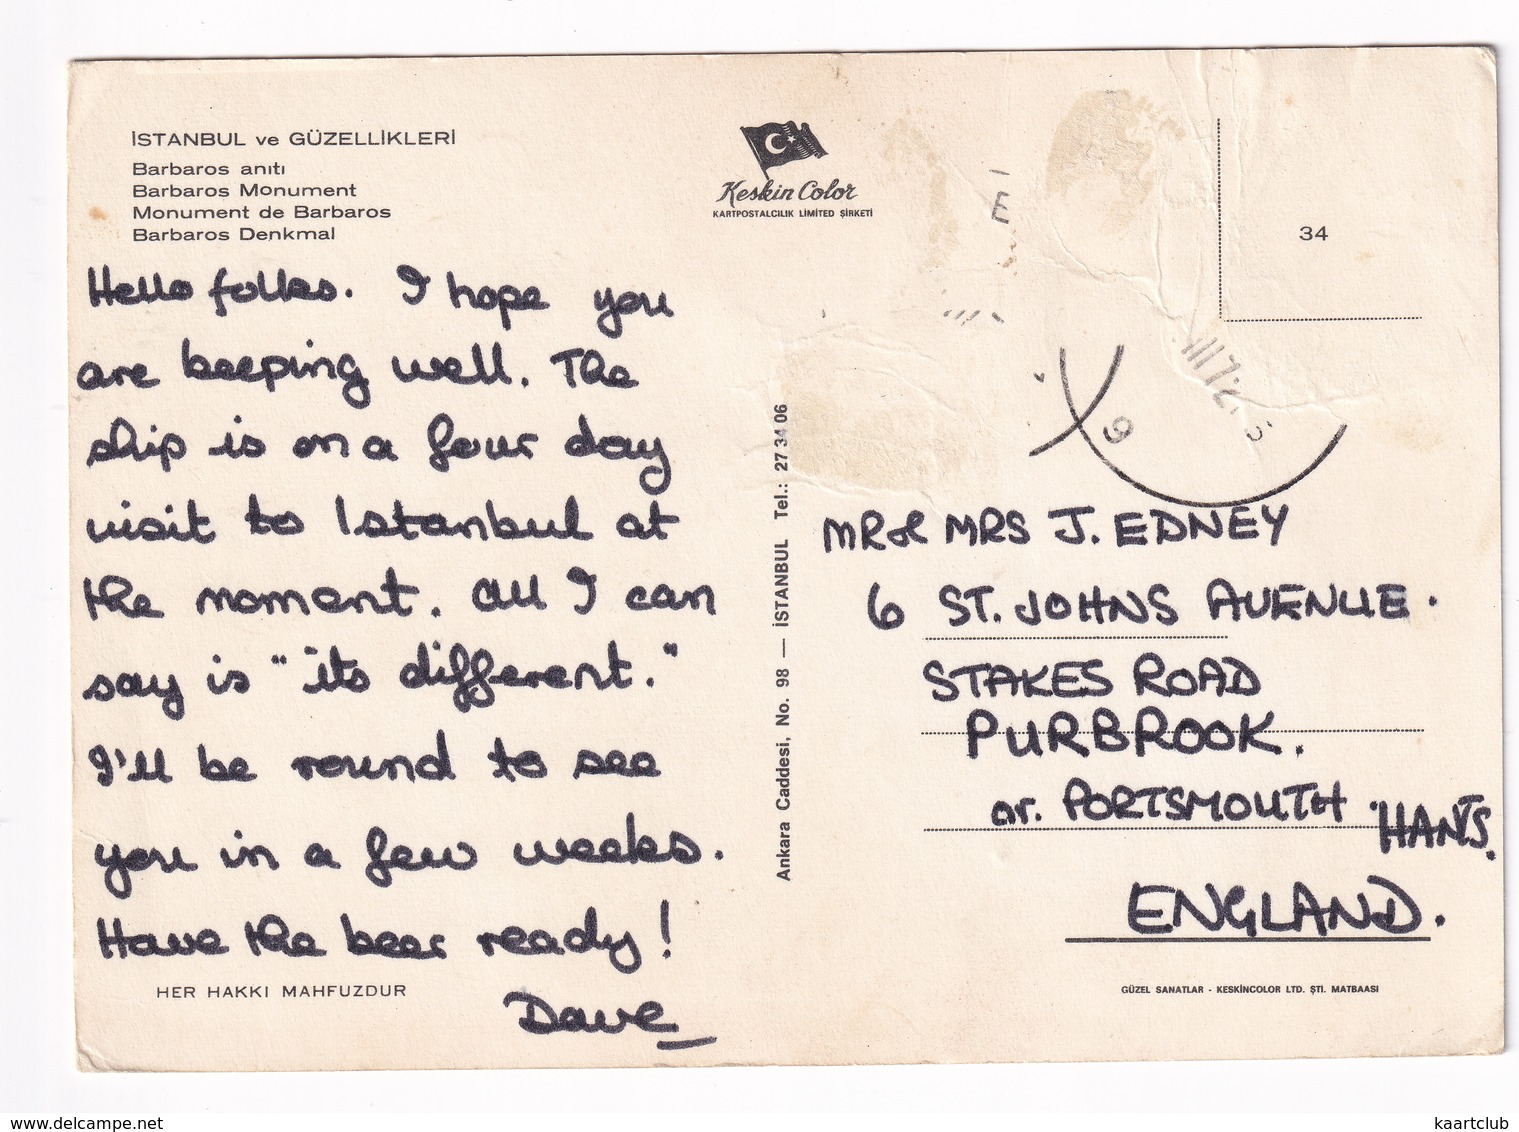 İSTANBUL ve GÜZELLİKLERİ
Barbaros anıtı
Barbaros Monument
Monument de Barbaros
Barbaros Denkmal
Hello folks. I hope you
are keeping well. The
ship is on a four day
visit to Istanbul at
the moment. All I can
say is "its different."
I'll be round to see
you in a few weeks.
Have the beer ready!
Dave
HER HAKKI MAHFUZDUR
Keskin Color
KARTPOSTALCILIK LIMITED ŞİRKETİ
Ankara Caddesi, No. 98 — İSTANBUL Tel.: 27 34 06
E
34
9
MR & MRS J. EDNEY
6 ST. JOHNS AVENUE.
STAKES ROAD
PURBROOK.
nr. PORTSMOUTH. HANTS.
ENGLAND.
GÜZEL SANATLAR - KESKİNCOLOR LTD. ŞTI. MATBAASI
kaartclub
delcampe.net